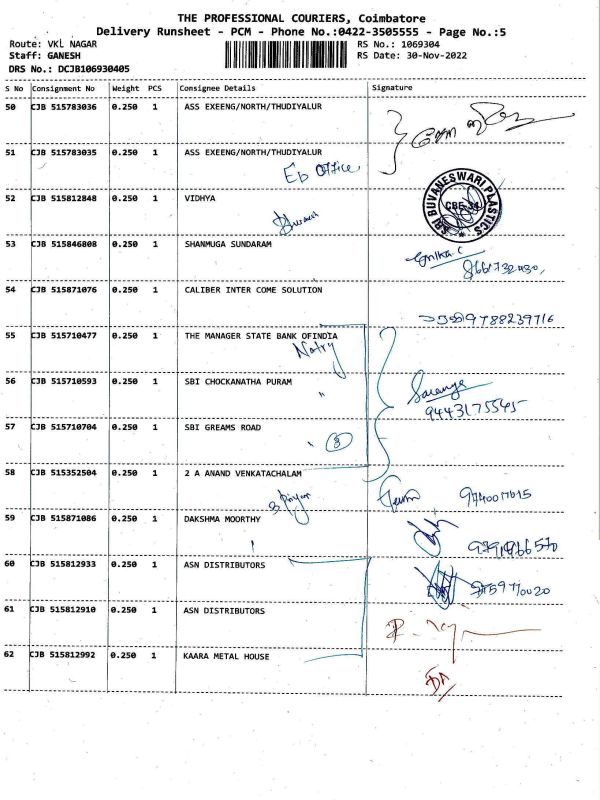 THE PROFESSIONAL COURIERS, Coimbatore
Delivery Runsheet - PCM - Phone No.:0422-3505555 - Page No.:5
Route: VKL NAGAR
RS No.: 1069304
Staff: GANESH
RS Date: 30-Nov-2022
DRS No.: DCJB106930405
S No Consignment No Weight PCS Consignee Details Signature
50 CJB 515783036 0.250 1 ASS EXEENG/NORTH/THUDIYALUR
51 CJB 515783035 0.250 1 ASS EXEENG/NORTH/THUDIYALUR
Eb Office
52 CJB 515812848 0.250 1 VIDHYA
SRI BUVANESWARI PLASTICS
CBE-34
53 CJB 515846808 0.250 1 SHANMUGA SUNDARAM
54 CJB 515871076 0.250 1 CALIBER INTER COME SOLUTION
9788239716
55 CJB 515710477 0.250 1 THE MANAGER STATE BANK OFINDIA
56 CJB 515710593 0.250 1 SBI CHOCKANATHA PURAM
57 CJB 515710704 0.250 1 SBI GREAMS ROAD
58 CJB 515352504 0.250 1 2 A ANAND VENKATACHALAM
59 CJB 515871086 0.250 1 DAKSHMA MOORTHY
60 CJB 515812933 0.250 1 ASN DISTRIBUTORS
61 CJB 515812910 0.250 1 ASN DISTRIBUTORS
62 CJB 515812992 0.250 1 KAARA METAL HOUSE